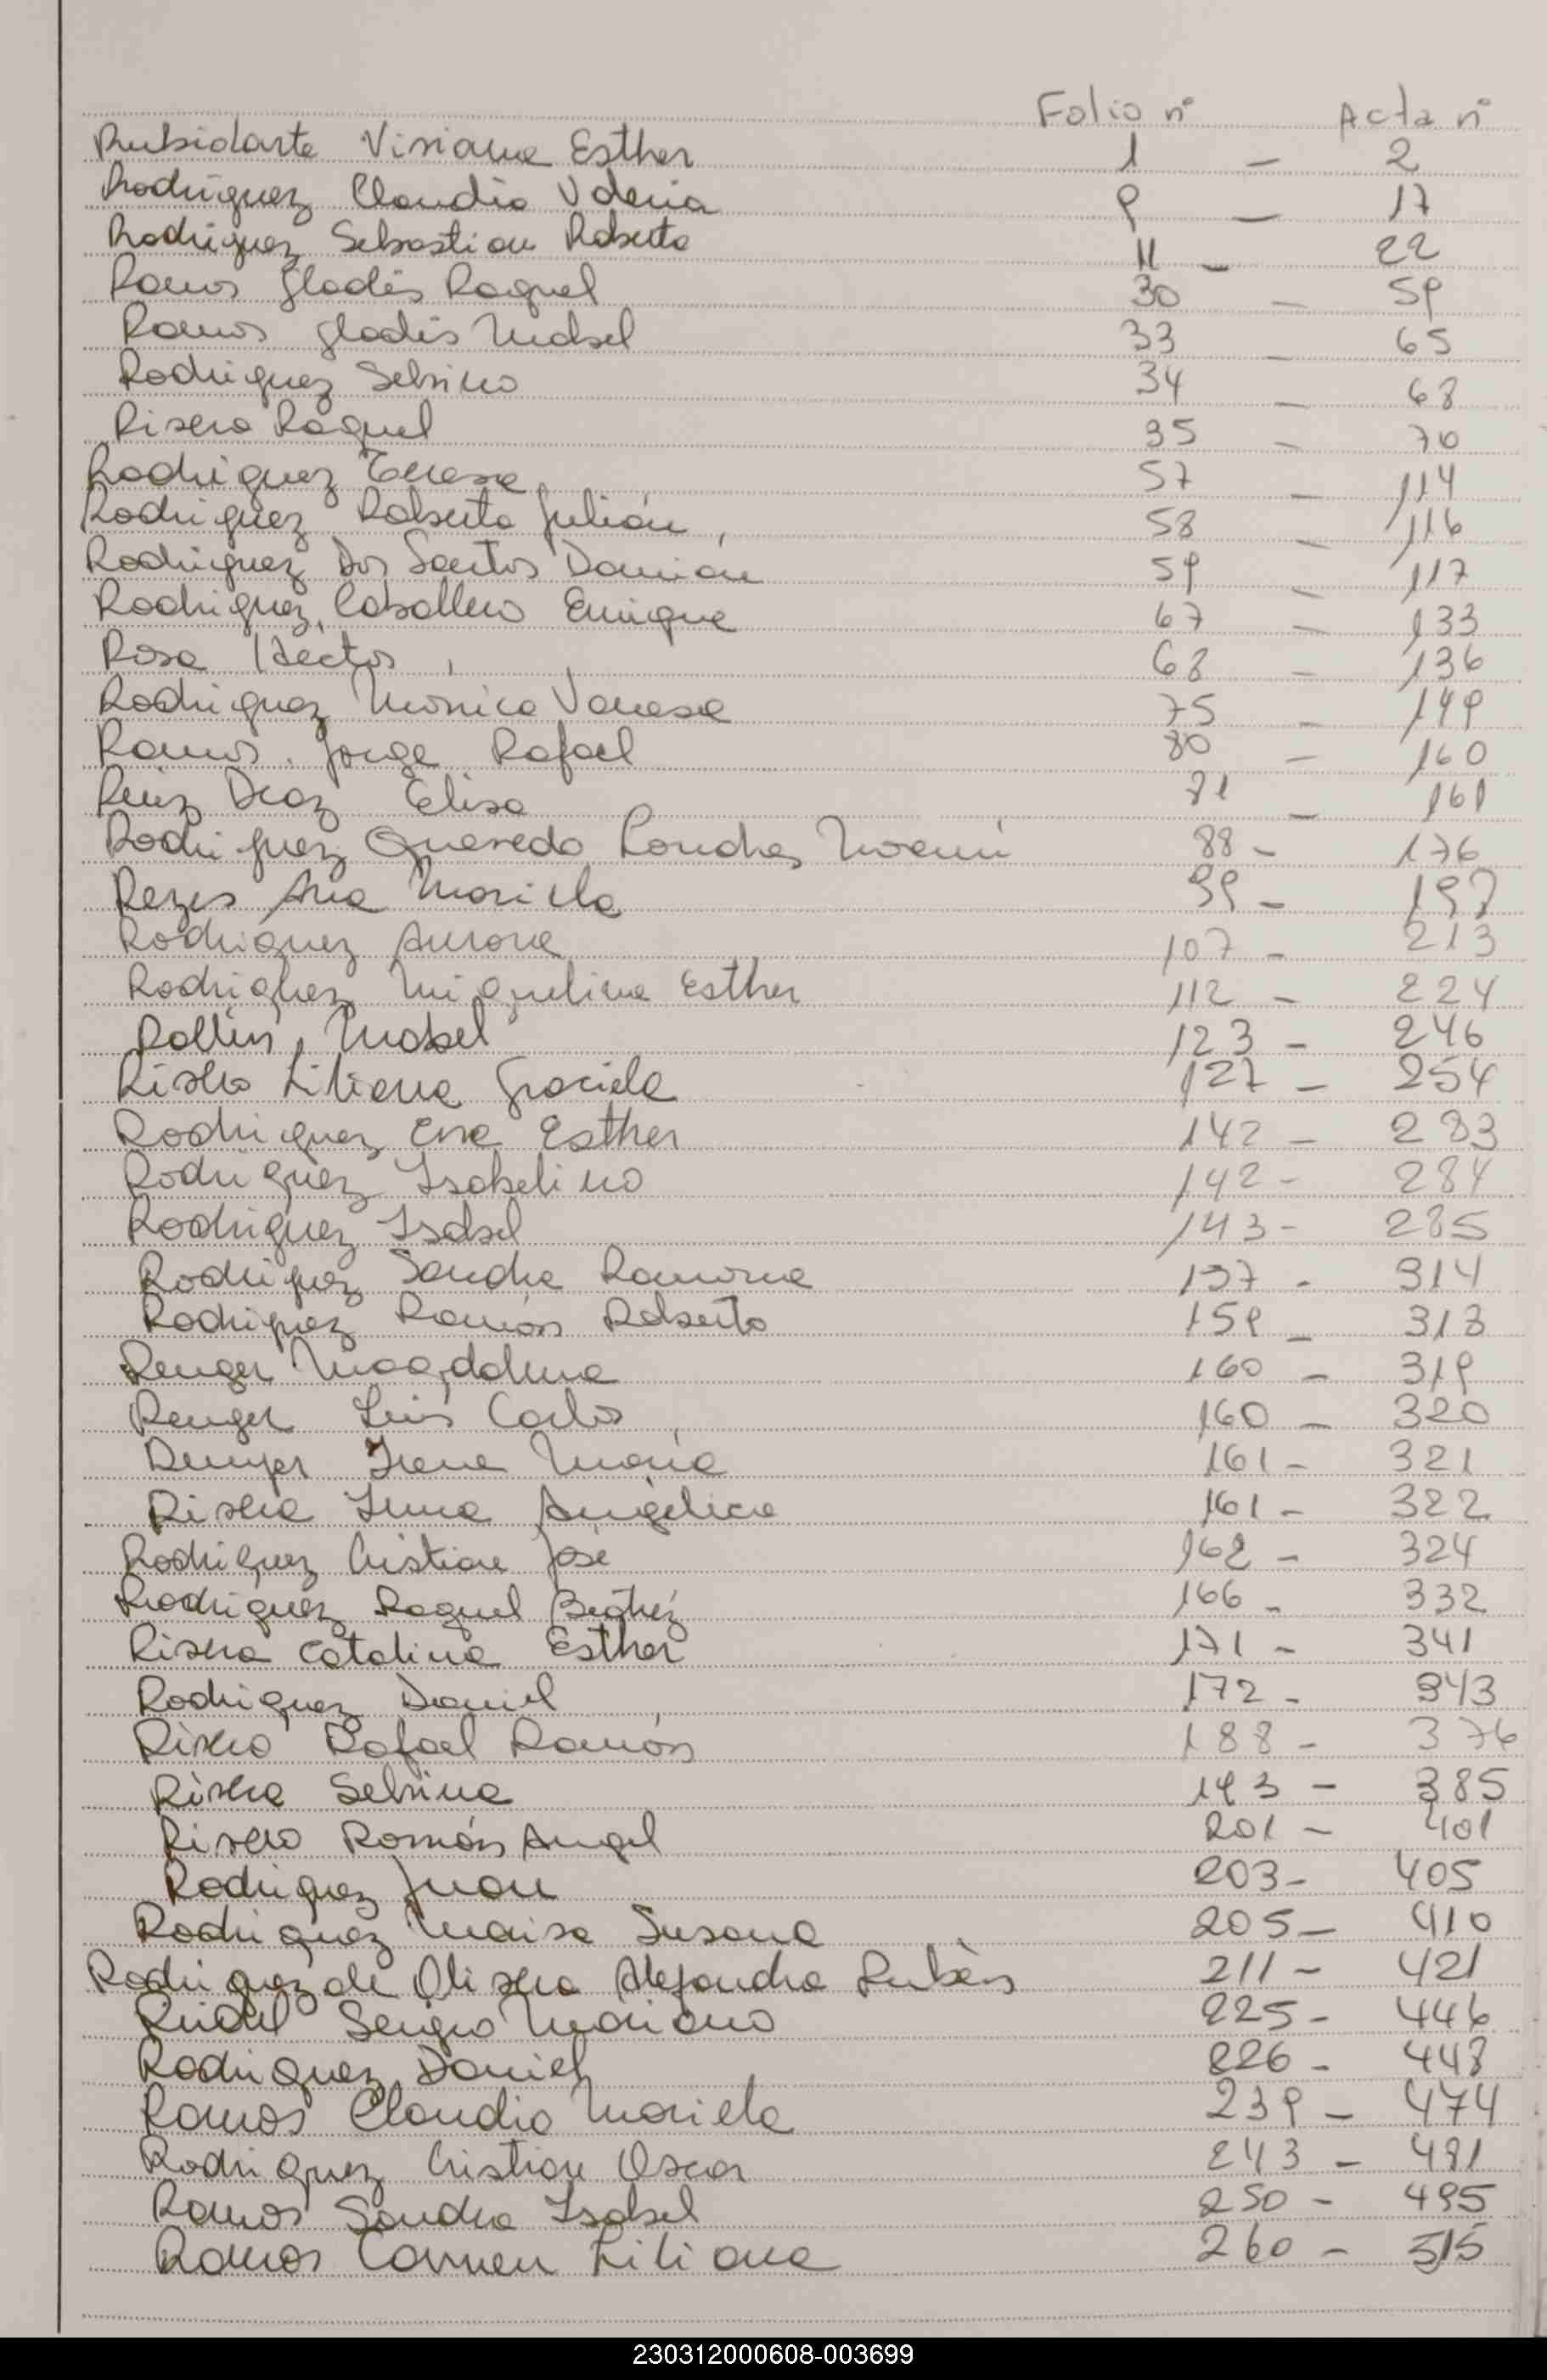 Folio nº Acta nº
Rubidarte Viviana Esther 1 - 2
Rodriguez Claudia Valeria 9 - 17
Rodriguez Sebastian Roberto 11 - 22
Ramos Gladis Raquel 30 - 59
Ramos Gladis Mabel 33 - 65
Rodriguez Selvino 34 - 68
Rivero Raquel 35 - 70
Rodriguez Teresa 57 - 114
Rodriguez Roberto Julián 58 - 116
Rodriguez Dos Santos Damián 59 - 117
Rodriguez Caballero Enrique 67 - 133
Rosa Hector 68 - 136
Rodriguez Mónica Vanesa 75 - 149
Ramos Jorge Rafael 80 - 160
Ruiz Diaz Elisa 81 - 161
Rodriguez Quevedo Lourdes Noemí 88 - 176
Reyes Ana Mariela 99 - 197
Rodriguez Aurora 107 - 213
Rodriguez Miguelina Esther 112 - 224
Rollin Mabel 123 - 246
Rivero Liliana Graciela 127 - 254
Rodriguez Eva Esther 142 - 283
Rodriguez Isabelino 142 - 284
Rodriguez Isabel 143 - 285
Rodriguez Sandra Ramona 157 - 314
Rodriguez Ramón Roberto 159 - 318
Renger Magdalena 160 - 319
Renger Luis Carlos 160 - 320
Renger Irene María 161 - 321
Rivera Irma Angélica 161 - 322
Rodriguez Cristian José 162 - 324
Rodriguez Raquel Beatriz 166 - 332
Rivera Catalina Esther 171 - 341
Rodriguez Daniel 172 - 343
Rivero Rafael Ramón 188 - 376
Rivera Selvina 193 - 385
Rivero Román Angel 201 - 401
Rodriguez Juan 203 - 405
Rodriguez Marisa Susana 205 - 410
Rodriguez de Olivera Alejandro Rubén 211 - 421
Sergio Mariano 225 - 446
Rodriguez Daniel 226 - 448
Ramos Claudia Mariela 239 - 474
Rodriguez Cristian Oscar 243 - 481
Ramos Sandra Isabel 250 - 495
Ramos Carmen Liliana 260 - 515
230312000608-003699